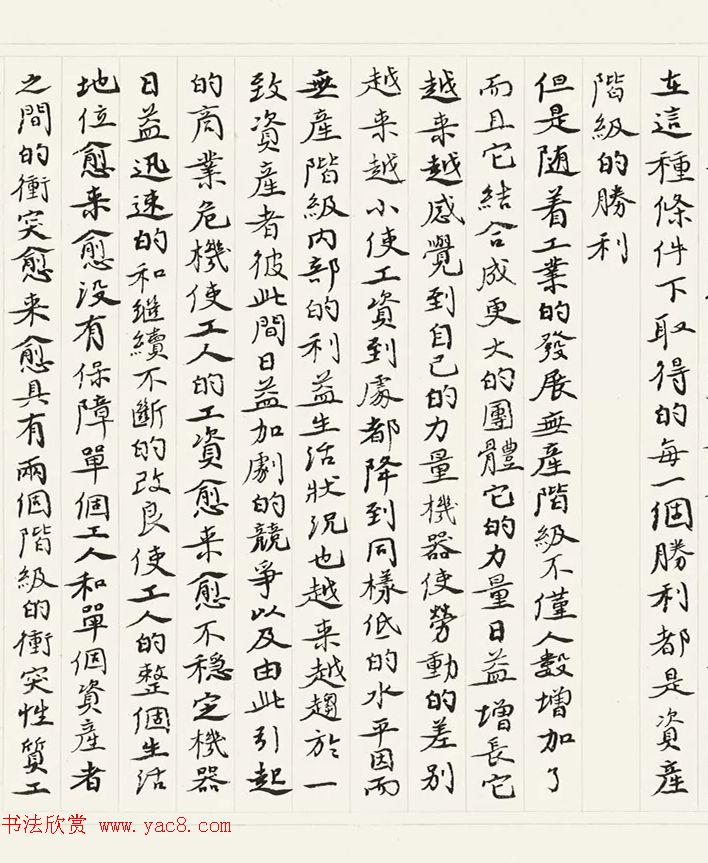 在這種條件下取得的每一個勝利都是資產
階級的勝利
但是随着工業的發展無產階級不僅人數增加了
而且它結合成更大的團體它的力量日益增長它
越来越感覺到自己的力量機器使勞動的差别
越来越小使工資到處都降到同樣低的水平因而
無產階級内部的利益生活狀況也越来越趨於一
致資產者彼此間日益加劇的競爭以及由此引起
的商業危機使工人的工資愈来愈不穩定機器
日益迅速的和继續不斷的改良使工人的整個生活
地位愈来愈没有保障單個工人和單個資產者
之間的衝突愈来愈具有兩個階級的衝突性質工
书法欣赏 www.yac8.com